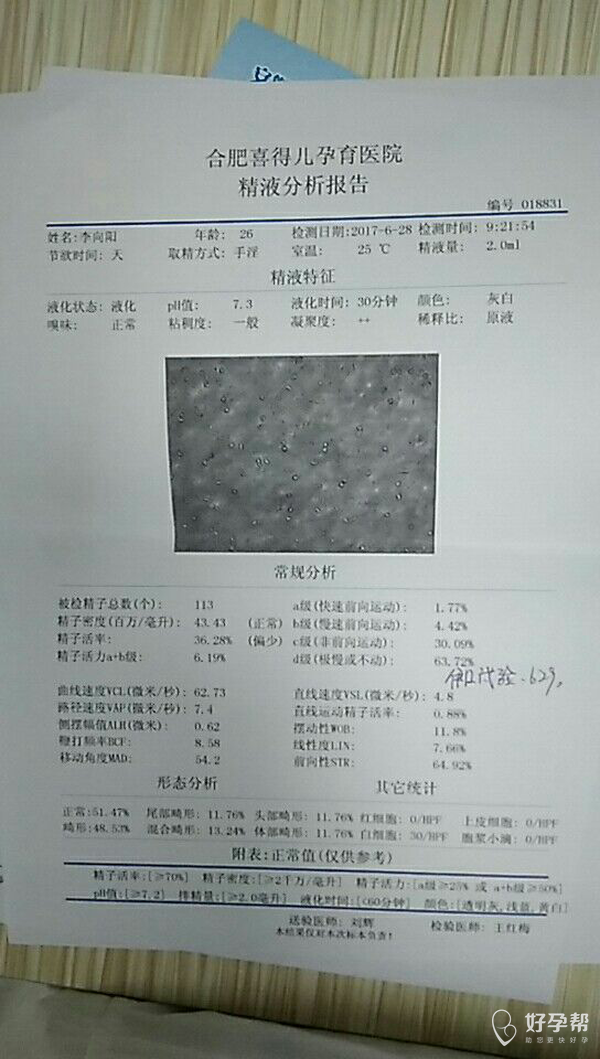 合肥喜得儿孕育医院
精液分析报告
编号 018831
姓名:李向阳 年龄: 26 检测日期:2017-6-28 检测时间: 9:21:54
节欲时间: 天 取精方式: 手淫 室温: 25 ℃ 精液量: 2.0ml
精液特征
液化状态: 液化 pH值: 7.3 液化时间: 30分钟 颜色: 灰白
嗅味: 正常 粘稠度: 一般 凝聚度: ++ 稀释比: 原液
常规分析
被检精子总数(个): 113 a级(快速前向运动): 1.77%
精子密度(百万/毫升): 43.43 (正常) b级(慢速前向运动): 4.42%
精子活率: 36.28% (偏少) c级(非前向运动): 30.09%
精子活力a+b级: 6.19% d级(极慢或不动): 63.72%
曲线速度VCL(微米/秒): 62.73 直线速度VSL(微米/秒): 4.8
路径速度VAP(微米/秒): 7.4 直线运动精子活率: 0.88%
侧摆幅值ALH(微米): 0.62 摆动性WOB: 11.8%
鞭打频率BCF: 8.58 线性度LIN: 7.66%
移动角度MAD: 54.2 前向性STR: 64.92%
形态分析 其它统计
正常:51.47% 尾部畸形: 11.76% 头部畸形: 11.76% 红细胞: 0/HPF 上皮细胞: 0/HPF
畸形:48.53% 混合畸形: 13.24% 体部畸形: 11.76% 白细胞: 30/HPF 胞浆小滴: 0/HPF
附表:正常值(仅供参考)
精子活率:[≥70%] 精子密度:[≥2千万/毫升] 精子活力:[a级≥25% 或 a+b级≥50%]
pH值:[≥7.2] 排精量:[≥2.0毫升] 液化时间:[<60分钟] 颜色:[透明灰,浅黄,黄白]
送验医师: 刘辉 检验医师: 王红梅
本结果仅对本次标本负责!
好孕帮
助您更快好孕